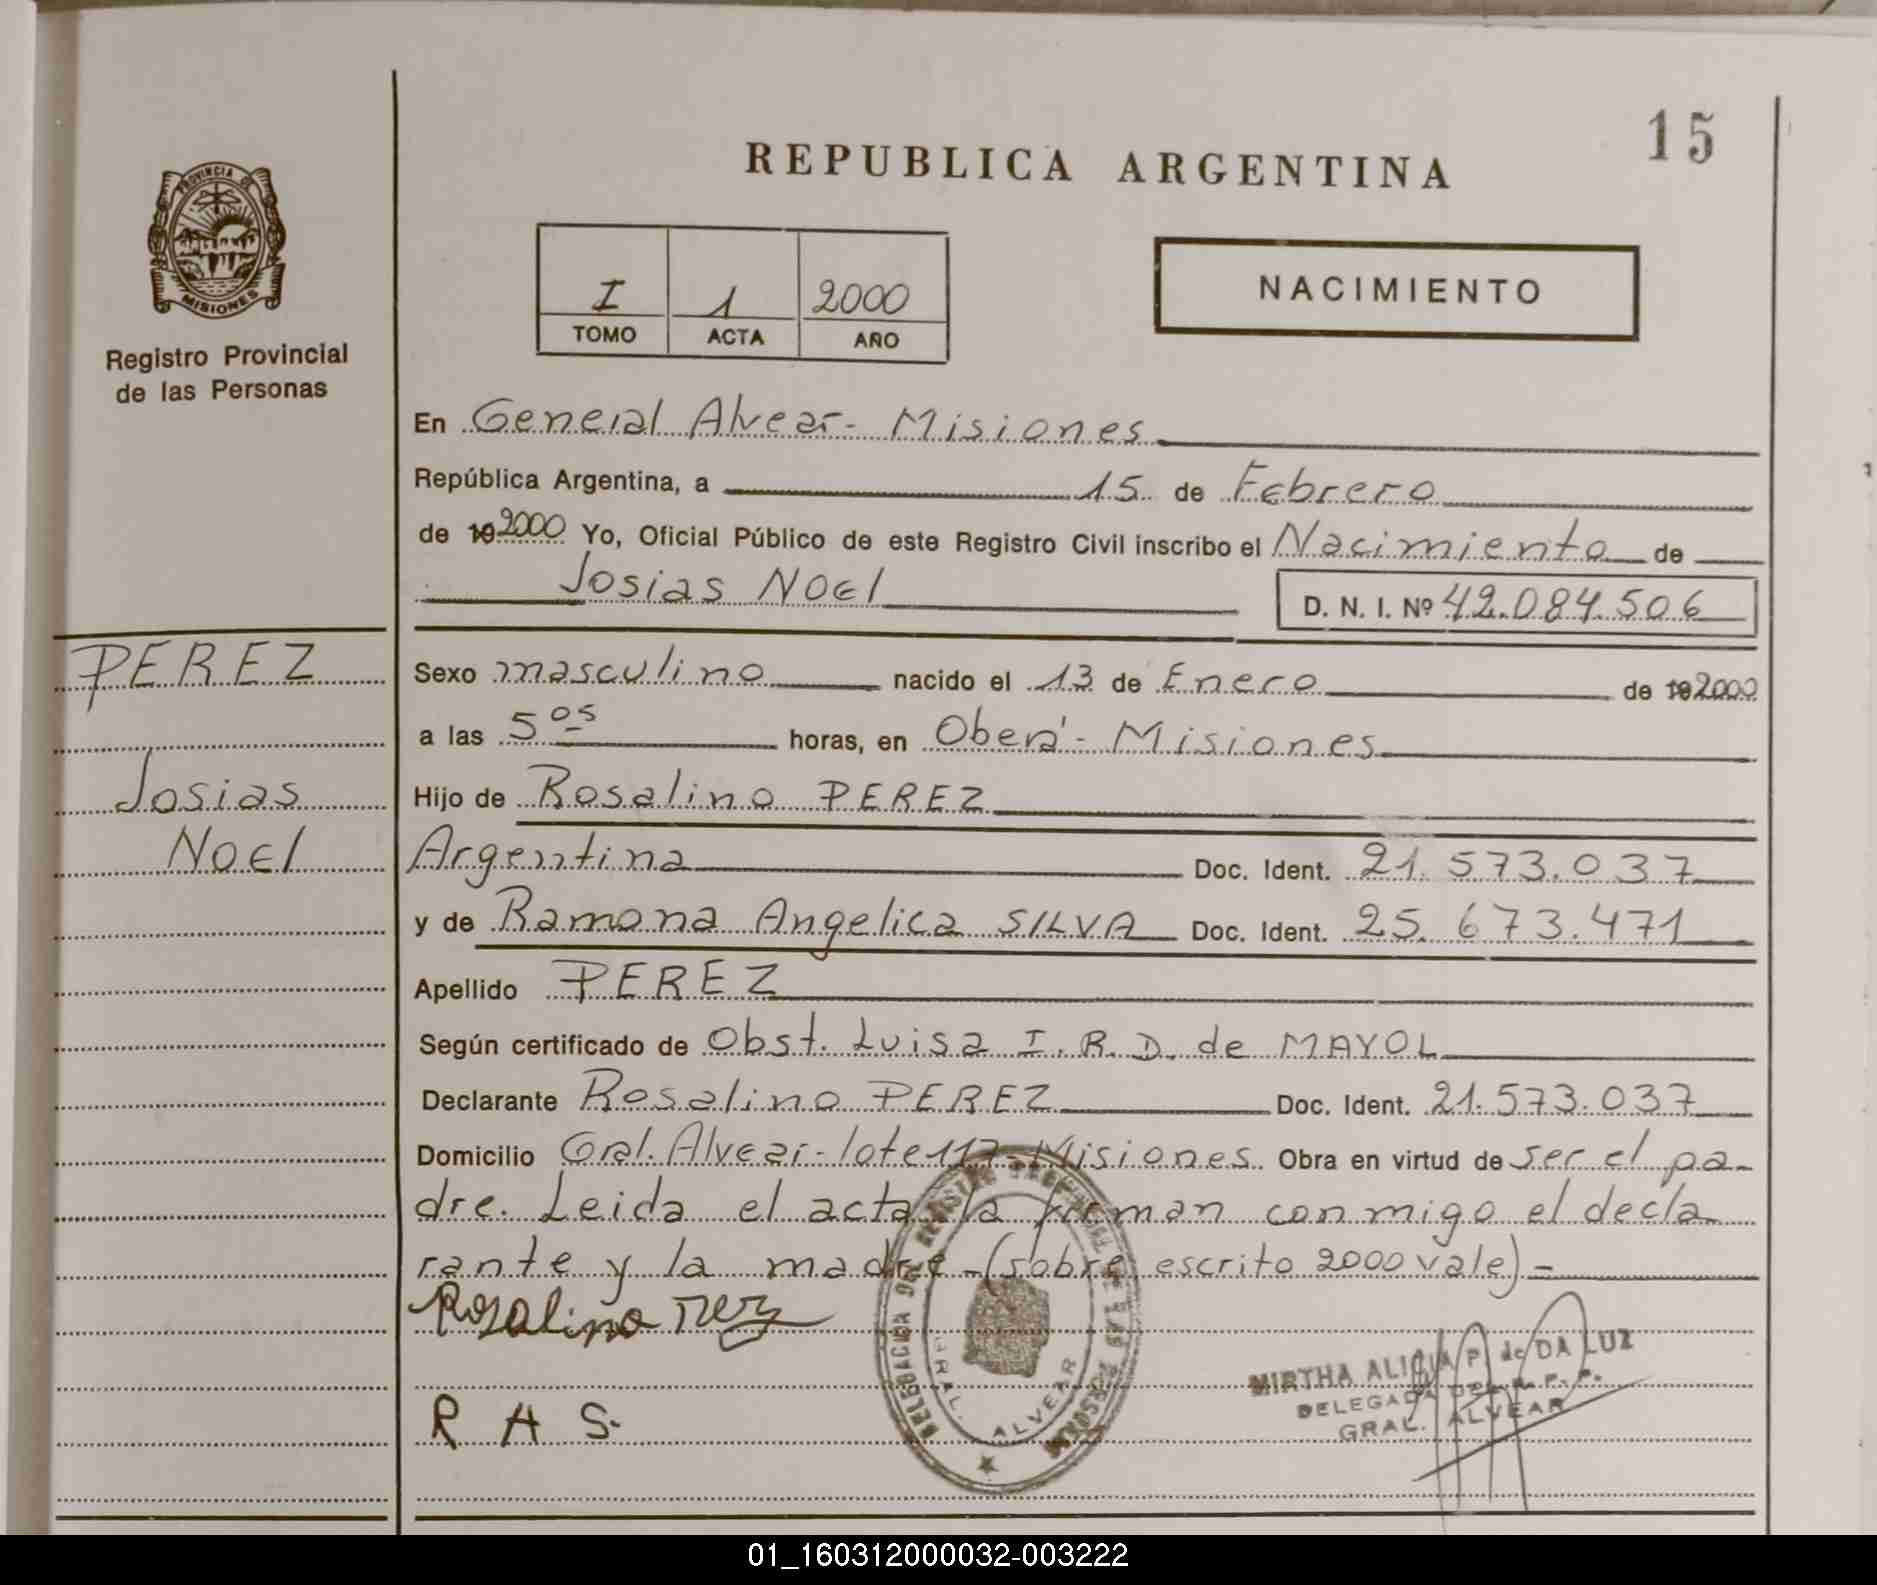 15
REPUBLICA ARGENTINA
PROVINCIA DE
MISIONES
Registro Provincial
de las Personas
I 1 2000
TOMO ACTA AÑO
NACIMIENTO
En General Alvear - Misiones
República Argentina, a 15 de Febrero
de 19 2000 Yo, Oficial Público de este Registro Civil inscribo el Nacimiento de
Josias NOEl
D. N. I. Nº 42.084.506
PEREZ
Josias
NOEl
Sexo masculino nacido el 13 de Enero de 19 2000
a las 5 05 horas, en Oberá - Misiones
Hijo de Rosalino PEREZ
Argentina Doc. Ident. 21.573.037
y de Ramona Angelica SILVA Doc. Ident. 25.673.471
Apellido PEREZ
Según certificado de Obst. Luisa I. R. D. de MAYOL
Declarante Rosalino PEREZ Doc. Ident. 21.573.037
Domicilio Gral. Alvear - lote 117 - Misiones Obra en virtud de ser el pa-
dre. Leida el acta la firman conmigo el decla
rante y la madre - (sobre escrito 2000 vale) -
Rosalino
R A S.
DELEGACION DEL REGISTRO PROVINCIAL DE LAS PERSONAS
GRAL. ALVEAR
MIRTHA ALICIA P. de DA LUZ
DELEGADA DEL R. P. P.
GRAL. ALVEAR
01_160312000032-003222